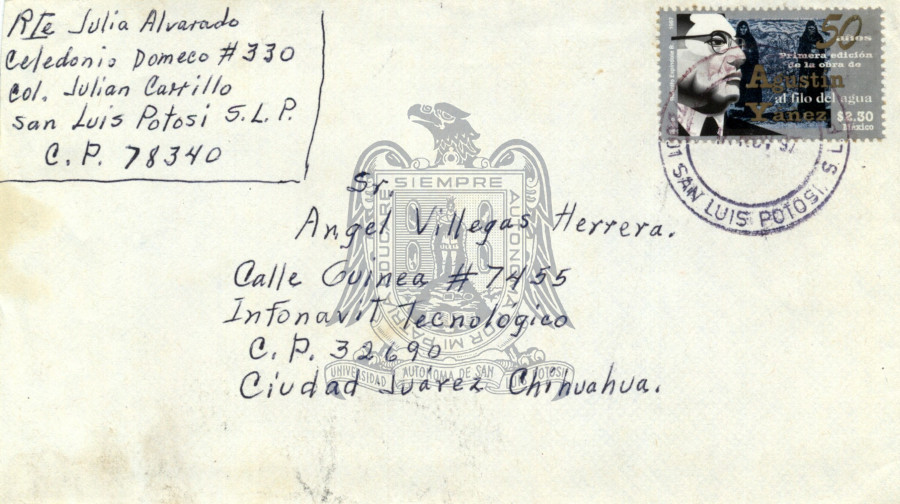 Rte Julia Alvarado
Celedonio Domeco #330
Col. Julian Carrillo
San Luis Potosi S.L.P.
C.P. 78340
50
años
Primera edición
de la obra de
Agustín
al filo del agua
Yáñez
$2.30
México
SAN LUIS POTOSI, S. L.
Sr.
Angel Villegas Herrera.
Calle Guinea # 7455
Infonavit Tecnológico
C.P. 32690
Ciudad Juárez Chihuahua.
SIEMPRE AUTONOMA
POR MI PATRIA EDUCARE
UNIVERSIDAD AUTONOMA DE SAN LUIS POTOSI